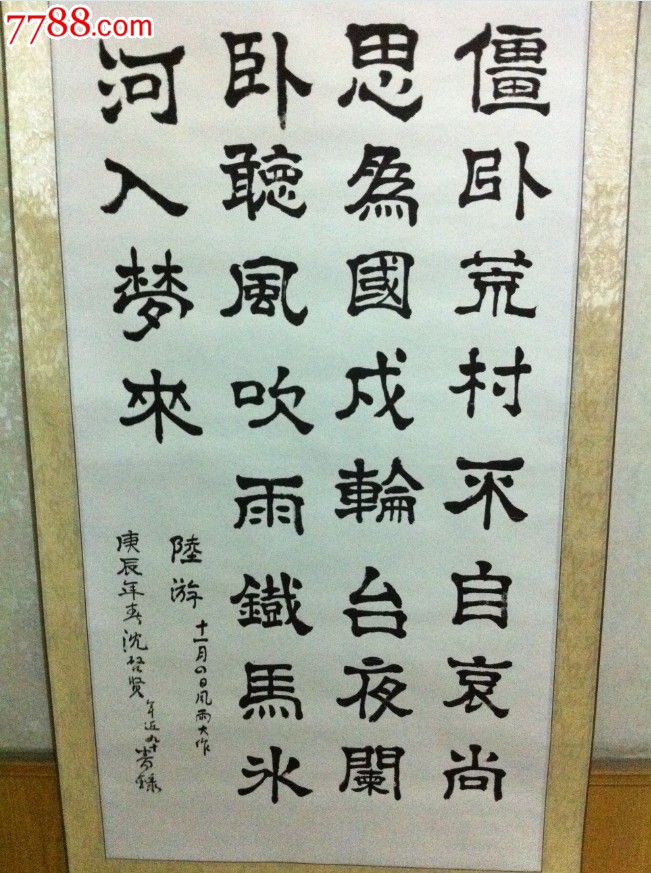 7788.com
僵卧荒村不自哀尚
思為國戍輪台夜闌
卧聽風吹雨鐵馬冰
河入夢來
陸游
十一月四日風雨大作
庚辰年春沈賢
年近九十書錄